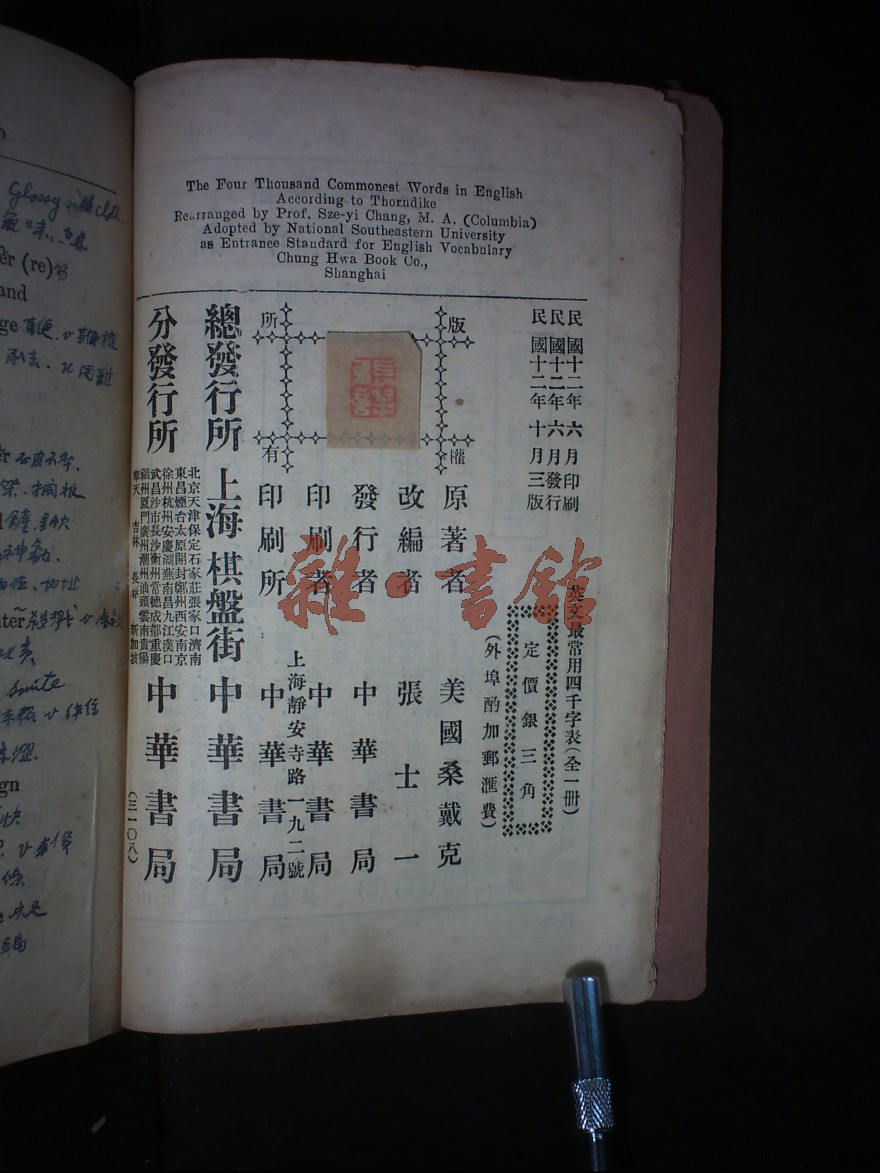 The Four Thousand Commonest Words in English
According to Thorndike
Rearranged by Prof. Sze-yi Chang, M. A. (Columbia)
Adopted by National Southeastern University
as Entrance Standard for English Vocabulary
Chung Hwa Book Co.,
Shanghai
民國十二年六月印刷
民國十二年六月發行
民國十二年十月三版
英文最常用四千字表(全一冊)
定價銀三角
(外埠酌加郵匯費)
版權所有
原著者 美國桑戴克
改編者 張士一
發行者 中華書局
印刷者 中華書局
上海靜安寺路一九二號
印刷所 中華書局
總發行所 上海棋盤街 中華書局
分發行所
北京天津保定石家莊張家口濟南
東昌煙台太原開封鄭州西安南京
徐州杭州安慶蕪湖南昌九江漢口
武昌沙市長沙衡州常德成都重慶
福州厦門廣州潮州汕頭雲南貴陽
奉天 吉林 長春 新加坡
中華書局
(三一〇八)
雜·書館
Glossy
er (re)
and
ge
suite
ign